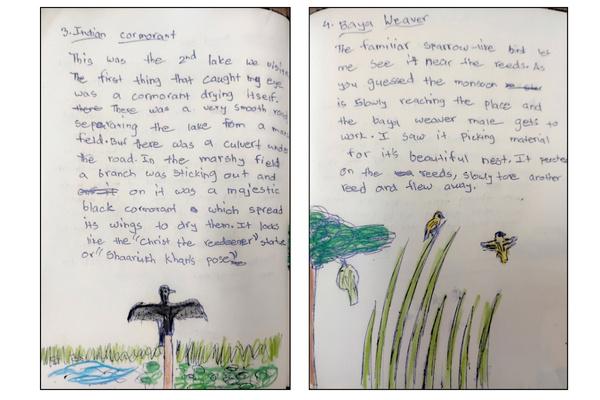 3. Indian cormorant
This was the 2nd lake we
The first thing that caught my eye
was a cormorant drying itself.
There was a very smooth road
separating the lake from a
field. But there was a culvert
the road. In the marshy field
a branch was sticking out and
on it was a majestic
black cormorant which spread
its wings to dry them. It looks
like the "Christ the redeemer"
or "Shaarukh Khan's pose"
4. Baya Weaver
The familiar sparrow-like bird let
me see it near the reeds. As
you guessed the monsoon
is slowly reaching the place and
the baya weaver male gets to
work. I saw it Picking material
for it's beautiful nest. It
on the reeds, slowly tore another
reed and flew away.